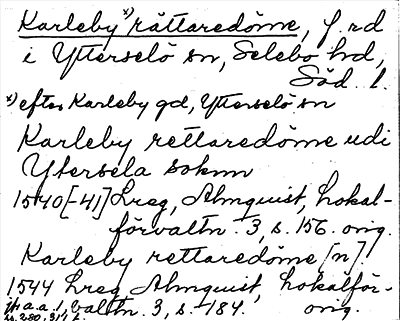 Karleby x) rättaredöme, f.rd
i Ytterselö sn, Selebo hd,
Söd. l.
x) efter Karleby gd, Ytterselö sn
Karleby rettaredöme udi
Ytersela soknn
1540[-41] Lreg, Almquist, Lokal-
förvaltn. 3, s. 156. orig.
Karleby rettaredöme [n].
1544 Lreg Almquist, Lokalför-
jfr a.a. 1, valtn. 3, s. 184. orig.
ss. 280, 317 f.